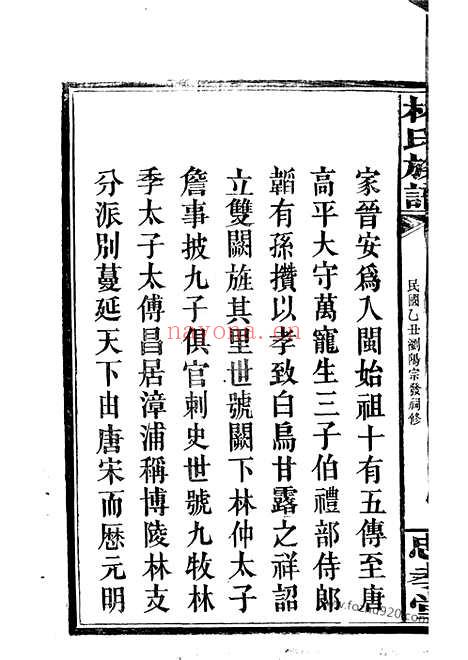 林氏族譜
民國乙丑瀏陽宗發祠修
忠孝堂
家晉安爲入閩始祖十有五傳至唐
高平大守萬寵生三子伯禮部侍郎
韜有孫攢以孝致白烏甘露之祥詔
立雙闕旌其里世號闕下林仲太子
詹事披九子俱官刺史世號九牧林
季太子太傅昌居漳浦稱博陵林支
分派別蔓延天下由唐宋而歷元明
nayona.cn
www.fozhu920.com